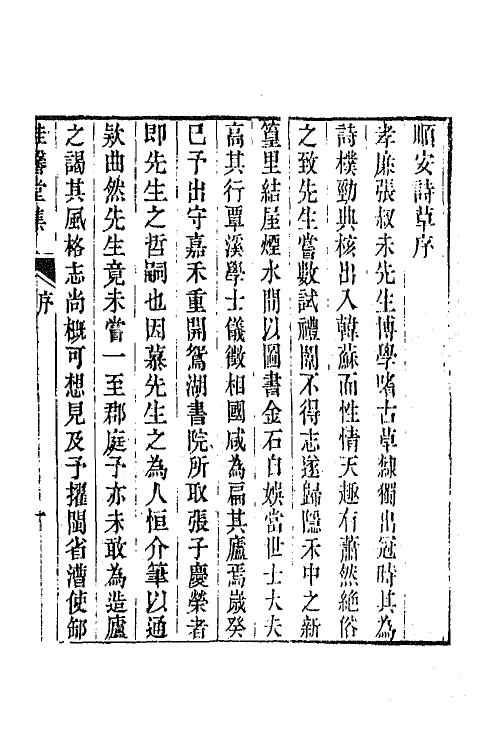 順安詩草序
孝廉張叔未先生博學嗜古草隸獨出冠時其為
詩樸勁典核出入韓蘇而性情天趣有蕭然絕俗
之致先生嘗數試禮闈不得志遂歸隱禾中之新
篁里結屋煙水間以圖書金石自娛當世士大夫
高其行覃溪學士儀徵相國咸為扁其廬焉歲癸
巳予出守嘉禾重開鴛湖書院所取張子慶榮者
即先生之哲嗣也因慕先生之為人恒介筆以通
欵曲然先生竟未嘗一至郡庭予亦未敢為造廬
之謁其風格志尚概可想見及予擢閩省漕使郵
桂馨堂集 序 一